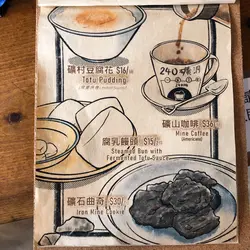 礦村豆腐花 $16/
Tofu Pudding
240
礦山咖啡 $36/
Mine Coffee
(Americano)
腐乳饅頭 $15/
Steamed Bun with
Fermented Tofu Sauce
礦石曲奇 $30/
Iron Mine Cookie